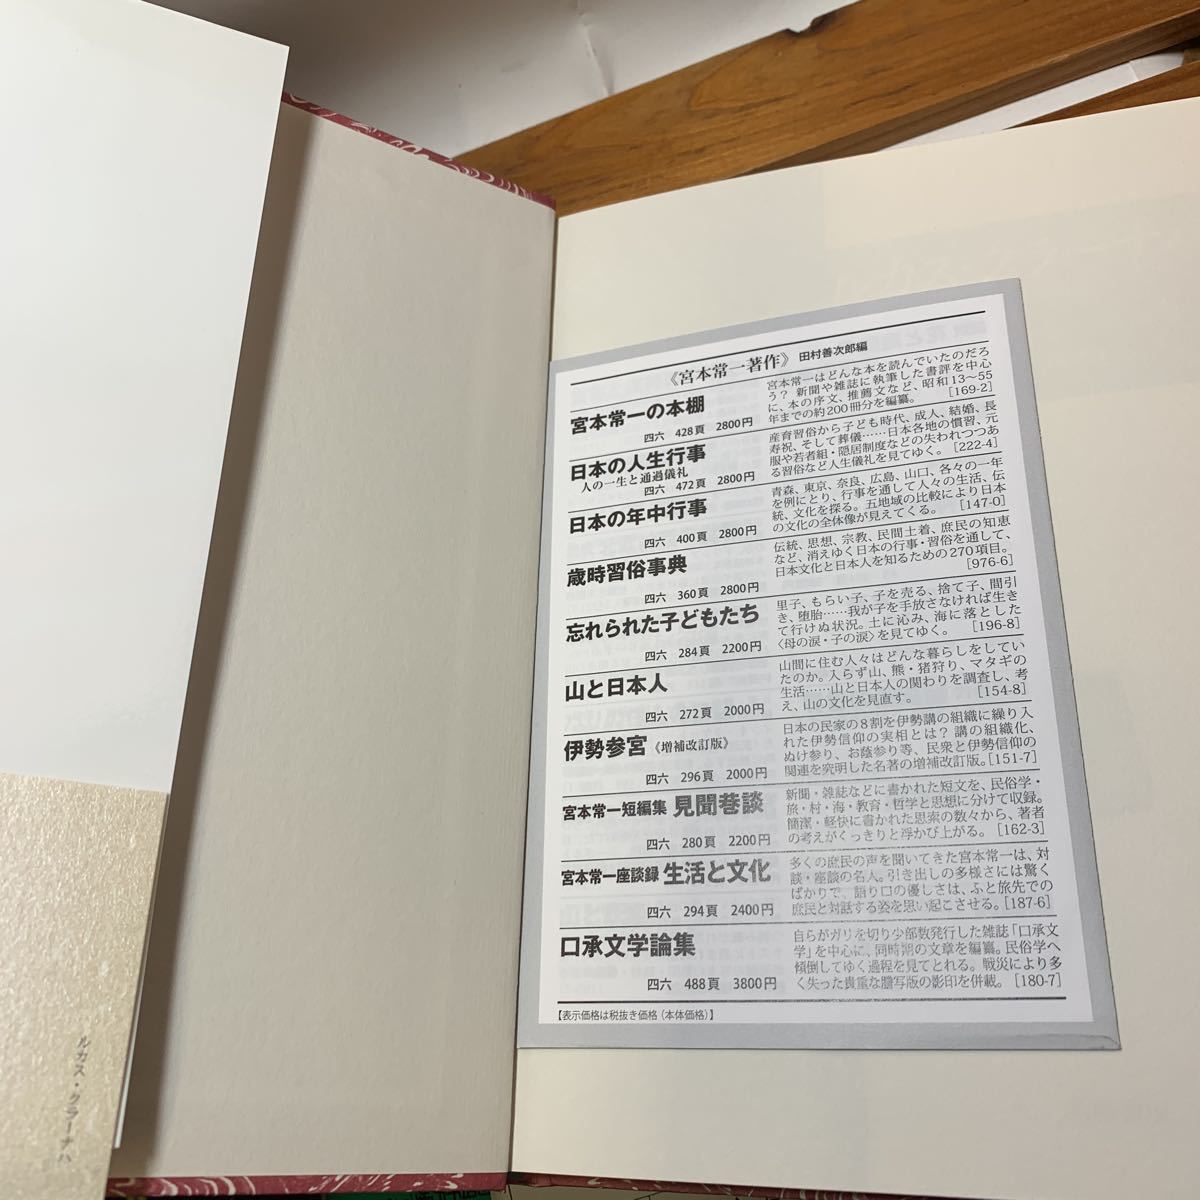 《宮本常一著作》 田村善次郎編
宮本常一の本棚
四六 428頁 2800円
宮本常一はどんな本を読んでいたのだろ
う? 新聞や雑誌に執筆した書評を中心
に、本の序文、推薦文など、昭和13〜55
年までの約200冊分を編纂。 [169-2]
日本の人生行事
人の一生と通過儀礼
四六 472頁 2800円
産育習俗から子ども時代、成人、結婚、長
寿祝、そして葬儀……日本各地の慣習、元
服や若者組・隠居制度などの失われつつあ
る習俗など人生儀礼を見てゆく。 [222-4]
日本の年中行事
四六 400頁 2800円
青森、東京、奈良、広島、山口、各々の一年
を例にとり、行事を通して人々の生活、伝
統、文化を探る。五地域の比較により日本
の文化の全体像が見えてくる。 [147-0]
歳時習俗事典
四六 360頁 2800円
伝統、思想、宗教、民間土着、庶民の知恵
など、消えゆく日本の行事・習俗を通して、
日本文化と日本人を知るための270項目。
[976-6]
忘れられた子どもたち
四六 284頁 2200円
里子、もらい子、子を売る、捨て子、間引
き、堕胎……我が子を手放さなければ生き
て行けぬ状況。土に沁み、海に落とした
〈母の涙・子の涙〉を見てゆく。 [196-8]
山と日本人
四六 272頁 2000円
山間に住む人々はどんな暮らしをしてい
たのか。入らず山、熊・猪狩り、マタギの
生活……山と日本人の関わりを調査し、考
え、山の文化を見直す。 [154-8]
伊勢参宮 《増補改訂版》
四六 296頁 2000円
日本の民家の8割を伊勢講の組織に繰り入
れた伊勢信仰の実相とは? 講の組織化、
ぬけ参り、お蔭参り等、民衆と伊勢信仰の
関連を究明した名著の増補改訂版。[151-7]
宮本常一短編集 見聞巷談
四六 280頁 2200円
新聞・雑誌などに書かれた短文を、民俗学・
旅・村・海・教育・哲学と思想に分けて収録。
簡潔・軽快に書かれた思索の数々から、著者
の考えがくっきりと浮かび上がる。 [162-3]
宮本常一座談録 生活と文化
四六 294頁 2400円
多くの庶民の声を聞いてきた宮本常一は、対
談・座談の名人。引き出しの多様さには驚く
ばかりで、語り口の優しさは、ふと旅先での
庶民と対話する姿を思い起こさせる。[187-6]
口承文学論集
四六 488頁 3800円
自らがガリを切り少部数発行した雑誌「口承文
学」を中心に、同時期の文章を編纂。民俗学へ
傾倒してゆく過程を見てとれる。戦災により多
く失った貴重な謄写版の影印を併載。 [180-7]
【表示価格は税抜き価格(本体価格)】
ルカス・クラーナハ